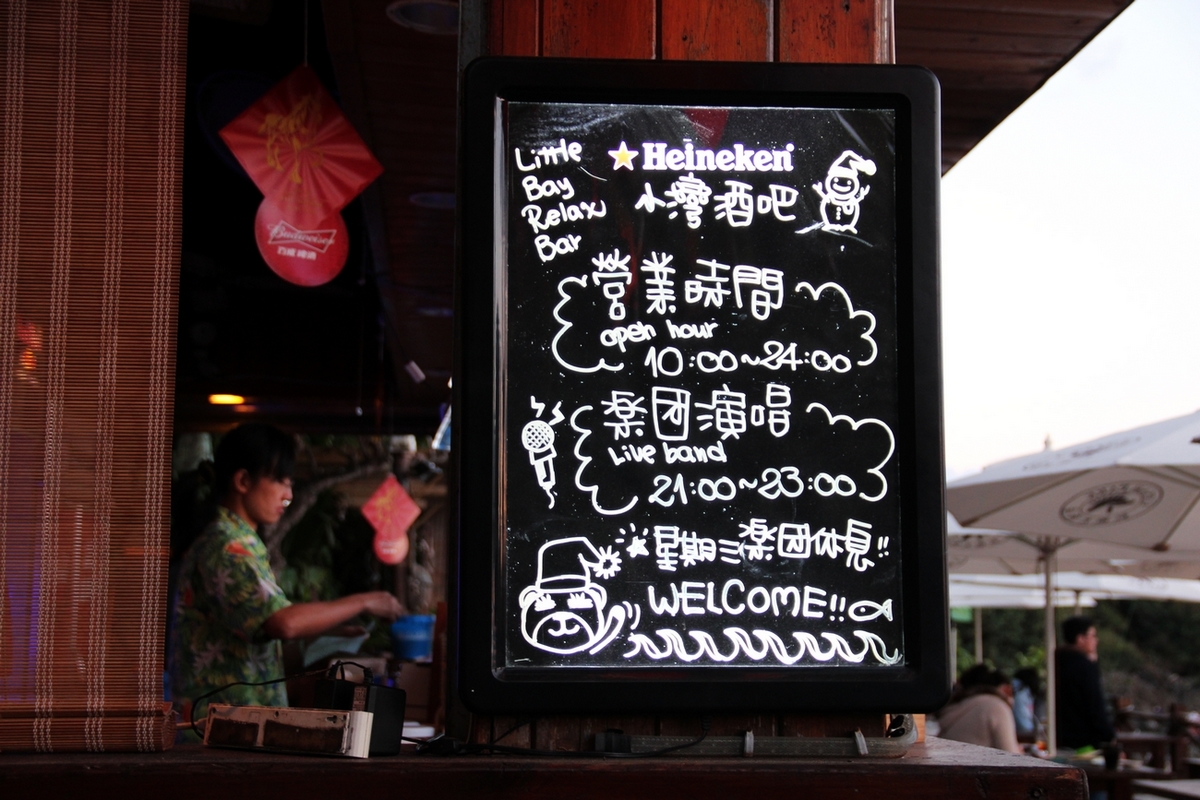 Little
Bay
Relax
Bar
Heineken
小灣酒吧
營業時間
open hour
10:00~24:00
楽団演唱
Live band
21:00~23:00
星期三楽団休息!!
WELCOME!!
Budweiser
百威啤酒